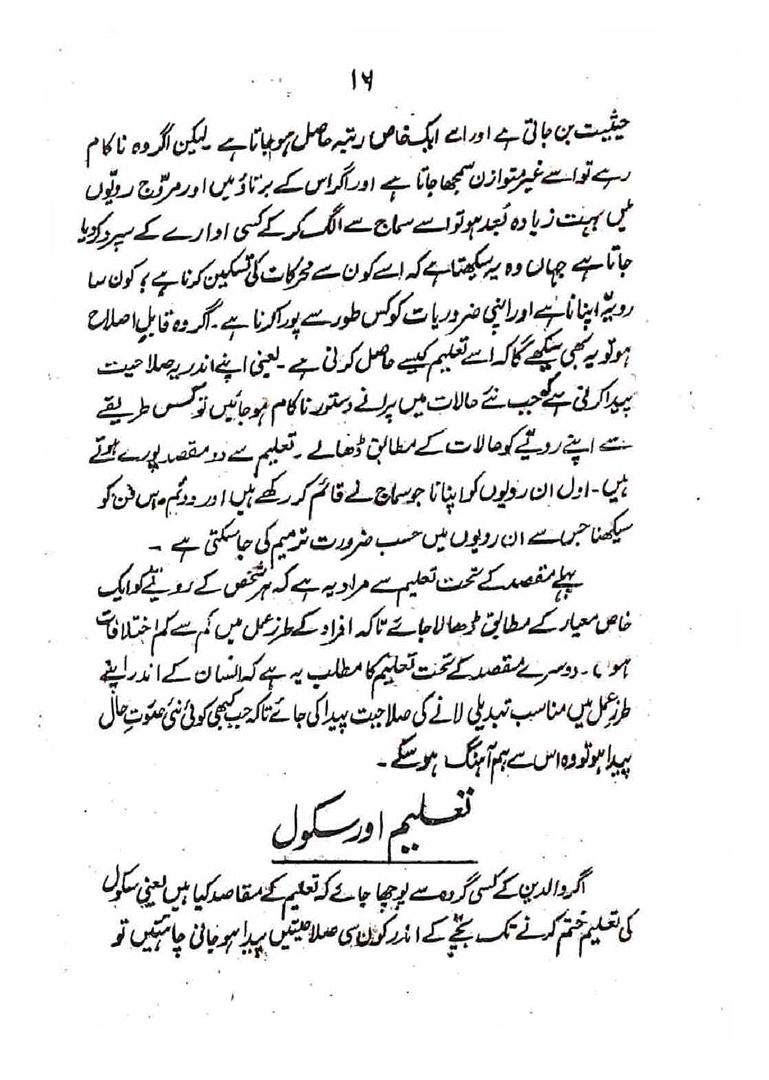 ۱۶
حیثیت بن جاتی ہے اور اسے ایک خاص رتبہ حاصل ہو جاتا ہے ۔ لیکن اگر وہ ناکام
رہے تو اسے غیر متوازن سمجھا جاتا ہے اور اگر اس کے برتاؤ میں اور مروّج رویّوں
میں بہت زیادہ بُعد ہو تو اسے سماج سے الگ کر کے کسی ادارے کے سپرد کر دیا
جاتا ہے جہاں وہ یہ سیکھتا ہے کہ اسے کون سے محرکات کی تسکین کرنا ہے ؛ کون سا
رویہّ اپنانا ہے اور اپنی ضروریات کو کس طور سے پورا کرنا ہے ۔ اگر وہ قابلِ اصلاح
ہو تو یہ بھی سیکھے گا کہ اسے تعلیم کیسے حاصل کرنی ہے ۔ یعنی اپنے اندر یہ صلاحیت
پیدا کرنی ہے کہ جب نئے حالات میں پرانے دستور ناکام ہو جائیں تو کس طریقے
سے اپنے رویّے کو حالات کے مطابق ڈھالے ۔ تعلیم سے دو مقصد پورے ہوتے
ہیں ۔ اول ان رویوں کو اپنانا جو سماج نے قائم کر رکھے ہیں اور دوئم ۔ اس فن کو
سیکھنا جس سے ان رویوں میں حسب ضرورت ترمیم کی جا سکتی ہے ۔
پہلے مقصد کے تحت تعلیم سے مراد یہ ہے کہ ہر شخص کے رویّے کو ایک
خاص معیار کے مطابق ڈھالا جائے تاکہ افراد کے طرز عمل میں کم سے کم اختلافات
ہوں ۔ دوسرے مقصد کے تحت تعلیم کا مطلب یہ ہے کہ انسان کے اندر اپنے
طرزِ عمل میں مناسب تبدیلی لانے کی صلاحیت پیدا کی جائے تاکہ جب کبھی کوئی نئی صورتِ حال
پیدا ہو تو وہ اس سے ہم آہنگ ہو سکے ۔
تعلیم اور سکول
اگر والدین کے کسی گروہ سے پوچھا جائے کہ تعلیم کے مقاصد کیا ہیں یعنی سکول
کی تعلیم ختم کرنے تک بچّے کے اندر کون سی صلاحیتیں پیدا ہو جانی چاہئیں تو